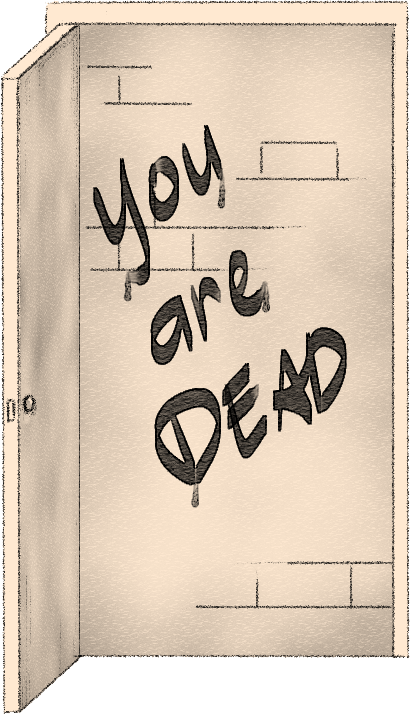 you
are
DEAD